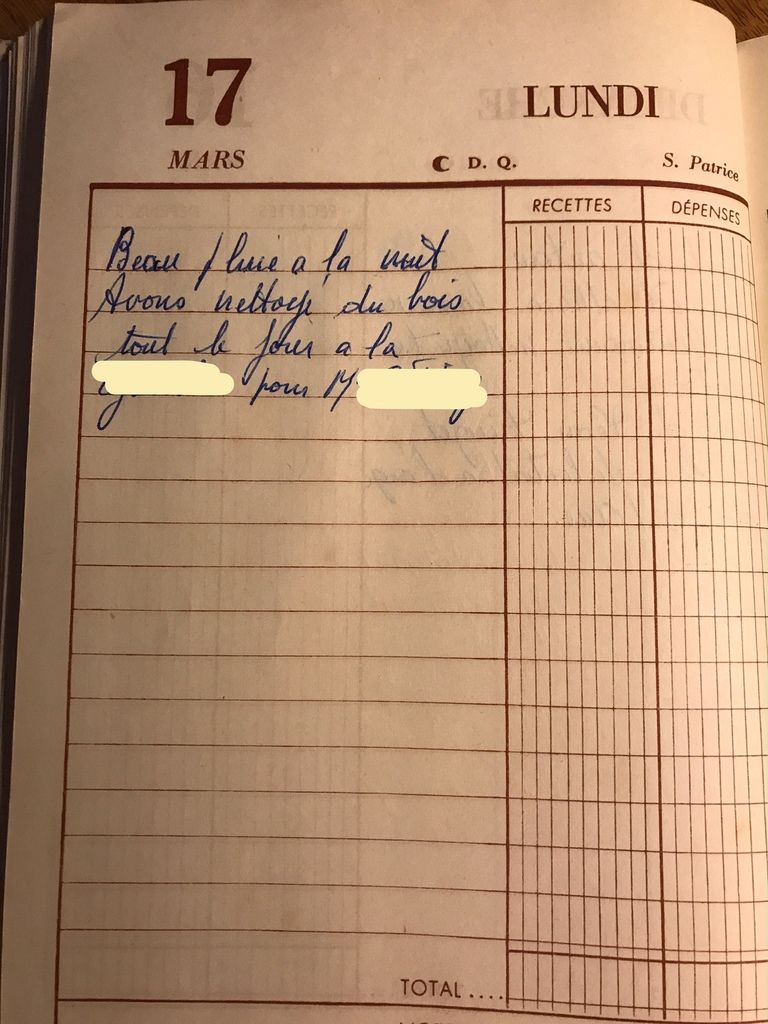 17 LUNDI
MARS D. Q. S. Patrice
RECETTES DÉPENSES
Beau pluie a la nuit
Avons nettoyé du bois
tout le jour a la
pour M
TOTAL ....